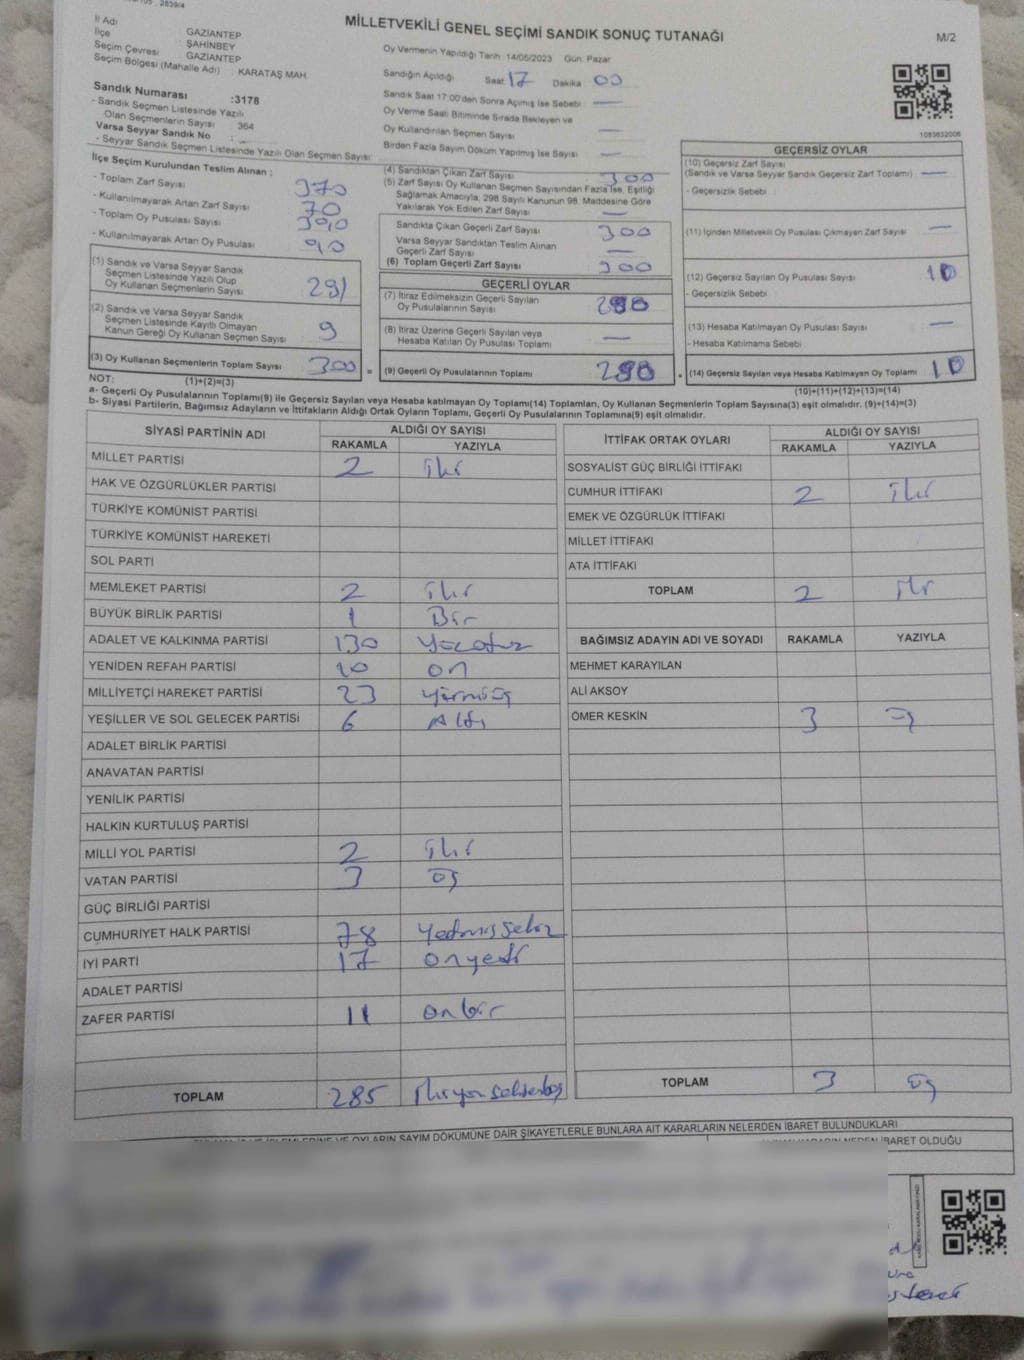 MİLLETVEKİLİ GENEL SEÇİMİ SANDIK SONUÇ TUTANAĞI
M/2
İl Adı GAZİANTEP
İlçe ŞAHİNBEY
Seçim Çevresi GAZİANTEP
Seçim Bölgesi (Mahalle Adı) : KARATAŞ MAH
Oy Vermenin Yapıldığı Tarih: 14/05/2023 Gün: Pazar
Sandığın Açıldığı Saat 17 Dakika 00
Sandık Saat 17:00'den Sonra Açılmış İse Sebebi —
Oy Verme Saati Bitiminde Sırada Bekleyen ve
Oy Kullandırılan Seçmen Sayısı —
Birden Fazla Sayım Döküm Yapılmış İse Sayısı —
Sandık Numarası :3178
- Sandık Seçmen Listesinde Yazılı
Olan Seçmenlerin Sayısı : 364
Varsa Seyyar Sandık No : -
- Seyyar Sandık Seçmen Listesinde Yazılı Olan Seçmen Sayısı:
1083632006
İlçe Seçim Kurulundan Teslim Alınan :
- Toplam Zarf Sayısı 370
- Kullanılmayarak Artan Zarf Sayısı 70
- Toplam Oy Pusulası Sayısı 390
- Kullanılmayarak Artan Oy Pusulası 90
(1) Sandık ve Varsa Seyyar Sandık
Seçmen Listesinde Yazılı Olup
Oy Kullanan Seçmenlerin Sayısı 291
(2) Sandık ve Varsa Seyyar Sandık
Seçmen Listesinde Kayıtlı Olmayan
Kanun Gereği Oy Kullanan Seçmen Sayısı 9
(3) Oy Kullanan Seçmenlerin Toplam Sayısı 300
(1)+(2)=(3)
(4) Sandıktan Çıkan Zarf Sayısı 300
(5) Zarf Sayısı Oy Kullanan Seçmen Sayısından Fazla İse, Eşitliği
Sağlamak Amacıyla, 298 Sayılı Kanunun 98. Maddesine Göre
Yakılarak Yok Edilen Zarf Sayısı —
Sandıkta Çıkan Geçerli Zarf Sayısı 300
Varsa Seyyar Sandıktan Teslim Alınan
Geçerli Zarf Sayısı —
(6) Toplam Geçerli Zarf Sayısı 300
GEÇERLİ OYLAR
(7) İtiraz Edilmeksizin Geçerli Sayılan
Oy Pusulalarının Sayısı 290
(8) İtiraz Üzerine Geçerli Sayılan veya
Hesaba Katılan Oy Pusulaları Toplamı —
(9) Geçerli Oy Pusulalarının Toplamı 290
GEÇERSİZ OYLAR
(10) Geçersiz Zarf Sayısı
(Sandık ve Varsa Seyyar Sandık Geçersiz Zarf Toplamı) —
- Geçersizlik Sebebi
(11) İçinden Milletvekili Oy Pusulası Çıkmayan Zarf Sayısı —
(12) Geçersiz Sayılan Oy Pusulası Sayısı 10
- Geçersizlik Sebebi
(13) Hesaba Katılmayan Oy Pusulası Sayısı —
- Hesaba Katılmama Sebebi
(14) Geçersiz Sayılan veya Hesaba Katılmayan Oy Toplamı 10
(10)+(11)+(12)+(13)=(14)
NOT:
a- Geçerli Oy Pusulalarının Toplamı(9) ile Geçersiz Sayılan veya Hesaba katılmayan Oy Toplamı(14) Toplamları, Oy Kullanan Seçmenlerin Toplam Sayısına(3) eşit olmalıdır. (9)+(14)=(3)
b- Siyasi Partilerin, Bağımsız Adayların ve İttifakların Aldığı Ortak Oyların Toplamı, Geçerli Oy Pusulalarının Toplamına(9) eşit olmalıdır.
SİYASİ PARTİNİN ADI ALDIĞI OY SAYISI
RAKAMLA YAZIYLA
MİLLET PARTİSİ 2 iki
HAK VE ÖZGÜRLÜKLER PARTİSİ
TÜRKİYE KOMÜNİST PARTİSİ
TÜRKİYE KOMÜNİST HAREKETİ
SOL PARTİ
MEMLEKET PARTİSİ 2 iki
BÜYÜK BİRLİK PARTİSİ 1 Bir
ADALET VE KALKINMA PARTİSİ 130 Yüzotuz
YENİDEN REFAH PARTİSİ 10 on
MİLLİYETÇİ HAREKET PARTİSİ 23 yirmiüç
YEŞİLLER VE SOL GELECEK PARTİSİ 6 Altı
ADALET BİRLİK PARTİSİ
ANAVATAN PARTİSİ
YENİLİK PARTİSİ
HALKIN KURTULUŞ PARTİSİ
MİLLİ YOL PARTİSİ 2 iki
VATAN PARTİSİ 3 üç
GÜÇ BİRLİĞİ PARTİSİ
CUMHURİYET HALK PARTİSİ 78 Yetmişsekiz
İYİ PARTİ 17 onyedi
ADALET PARTİSİ
ZAFER PARTİSİ 11 onbir
TOPLAM 285 ikiyüzseksenbeş
İTTİFAK ORTAK OYLARI ALDIĞI OY SAYISI
RAKAMLA YAZIYLA
SOSYALİST GÜÇ BİRLİĞİ İTTİFAKI
CUMHUR İTTİFAKI 2 iki
EMEK VE ÖZGÜRLÜK İTTİFAKI
MİLLET İTTİFAKI
ATA İTTİFAKI
TOPLAM 2 iki
BAĞIMSIZ ADAYIN ADI VE SOYADI RAKAMLA YAZIYLA
MEHMET KARAYILAN
ALİ AKSOY
ÖMER KESKİN 3 üç
TOPLAM 3 üç
OYLARIN SAYIM DÖKÜMÜNE DAİR ŞİKAYETLERLE BUNLARA AİT KARARLARIN NELERDEN İBARET BULUNDUKLARI
İBARET OLDUĞU